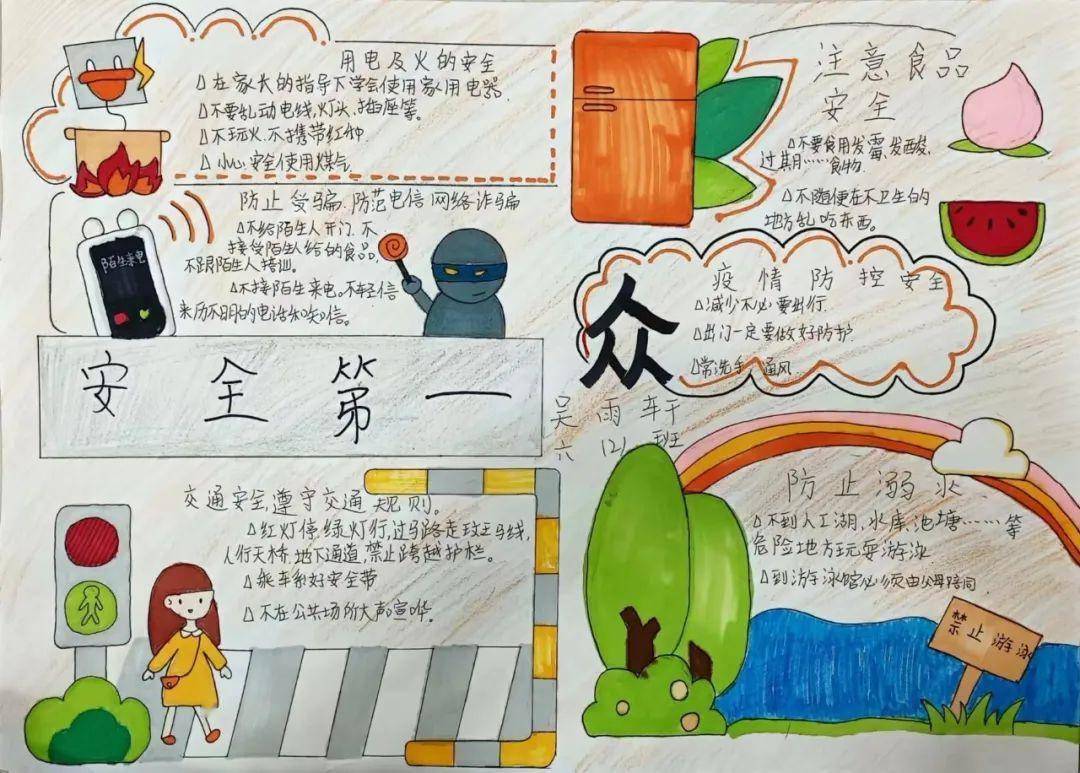 用电及火的安全
△在家长的指导下学会使用家用电器.
△不要乱动电线,灯头、插座等。
△不玩火.不携带火种.
△小心安全使用煤气.
防止受骗.防范电信网络诈骗
△不给陌生人开门.不
接受陌生人给的食品,
不跟陌生人搭讪。
△不接陌生来电。不轻信
来历不明的电话和短信。
陌生来电
安全第一
交通安全,遵守交通规则。
△红灯停,绿灯行,过马路走斑马线,
人行天桥.地下通道,禁止跨越护栏。
△乘车系好安全带
△不在公共场所大声喧哗.
注意食品
安全
△不要食用发霉,发酸,
过期……食物.
△不随便在不卫生的
地方乱吃东西。
众
疫情防控安全
△减少不必要出行.
△出门一定要做好防护.
△常洗手,通风.
吴雨轩
六(2)班
防止溺水.
△不到人工湖,水库.池塘……等
危险地方玩耍游泳
△到游泳馆必须由父母陪同.
禁止游泳